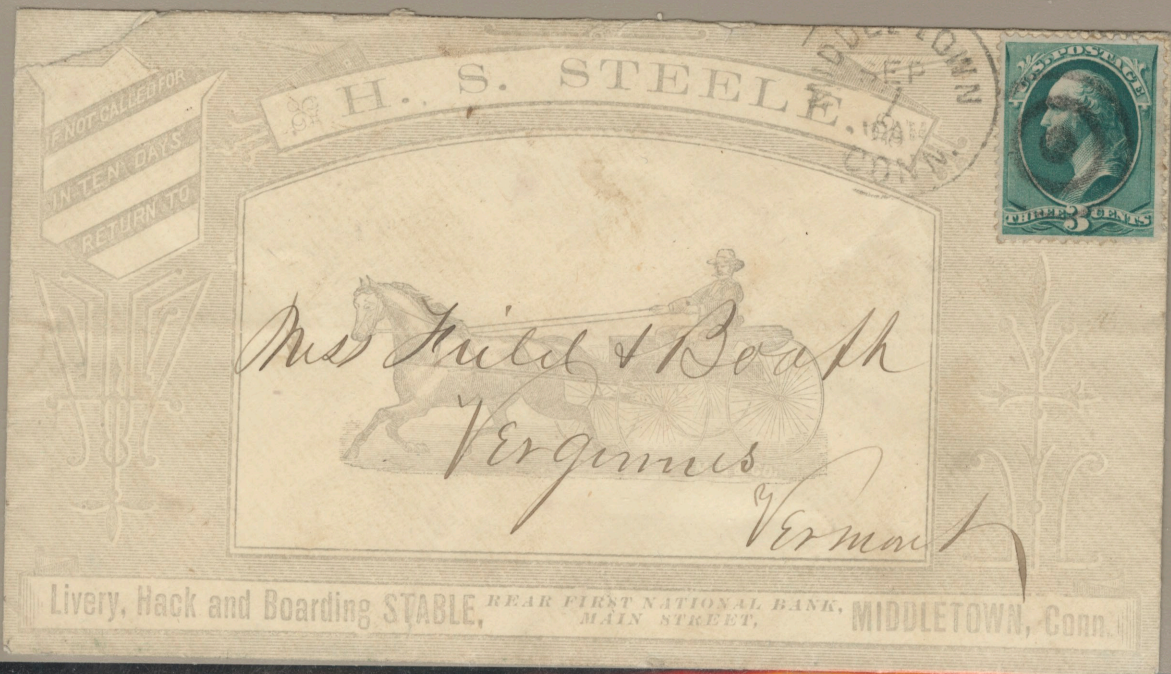 IF NOT CALLED FOR
IN TEN DAYS
RETURN TO
H. S. STEELE.
MIDDLETOWN
SEP
1
10 AM
CONN.
U.S. POSTAGE
THREE 3 CENTS
Mess Feild & Booth
Vergennes
Vermont
Livery, Hack and Boarding STABLE, REAR FIRST NATIONAL BANK, MIDDLETOWN, Conn.
MAIN STREET,